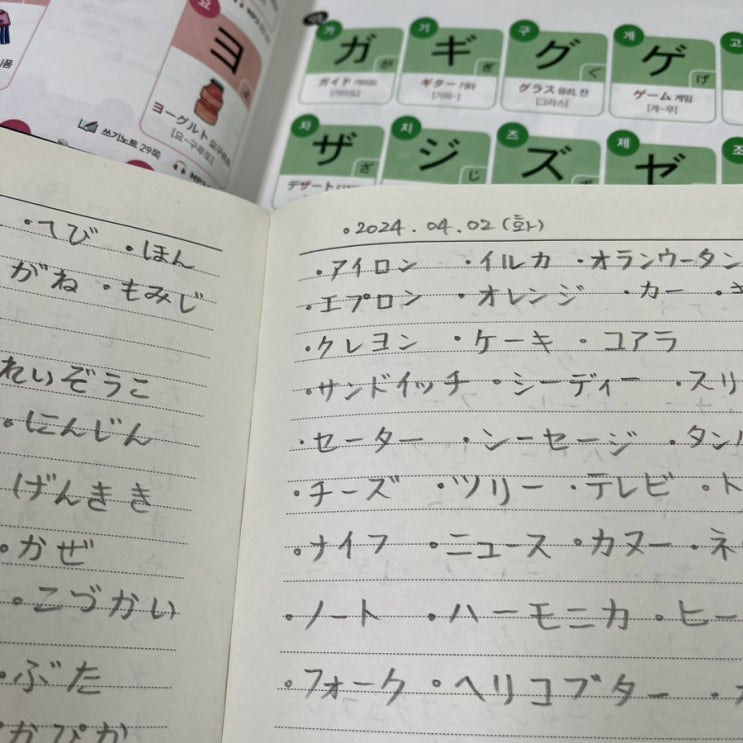 요
ヨ
ヨーグルト 요구르트
[요-구루또]
쓰기노트 29쪽
가 기 구 게 고
ガ ギ グ ゲ
が ぎ ぐ げ
ガイド 가이드 ギター 기타 グラス 유리, 잔 ゲーム 게임
[가이도] [기따-] [그라스] [게-무]
자 지 즈 제 조
ザ ジ ズ ゼ
ざ じ
デザート
・へび ・ほん
がね ・もみじ
れいぞうこ
・にんじん
げんきき
・かぜ
・こづかい
・ぶた
かぴか
・2024.04.02 (화)
・アイロン ・イルカ ・オランウータン
・エプロン ・オレンジ ・カー
・クレヨン ・ケーキ ・コアラ
・サンドイッチ ・シーディー ・スリ
・セーター ・シーセージ ・タン
・チーズ ・ツリー ・テレビ ・ト
・ナイフ ・ニュース ・カヌー ・ネ
・ノート ・ハーモニカ ・ヒー
・フォーク ・ヘリコブター